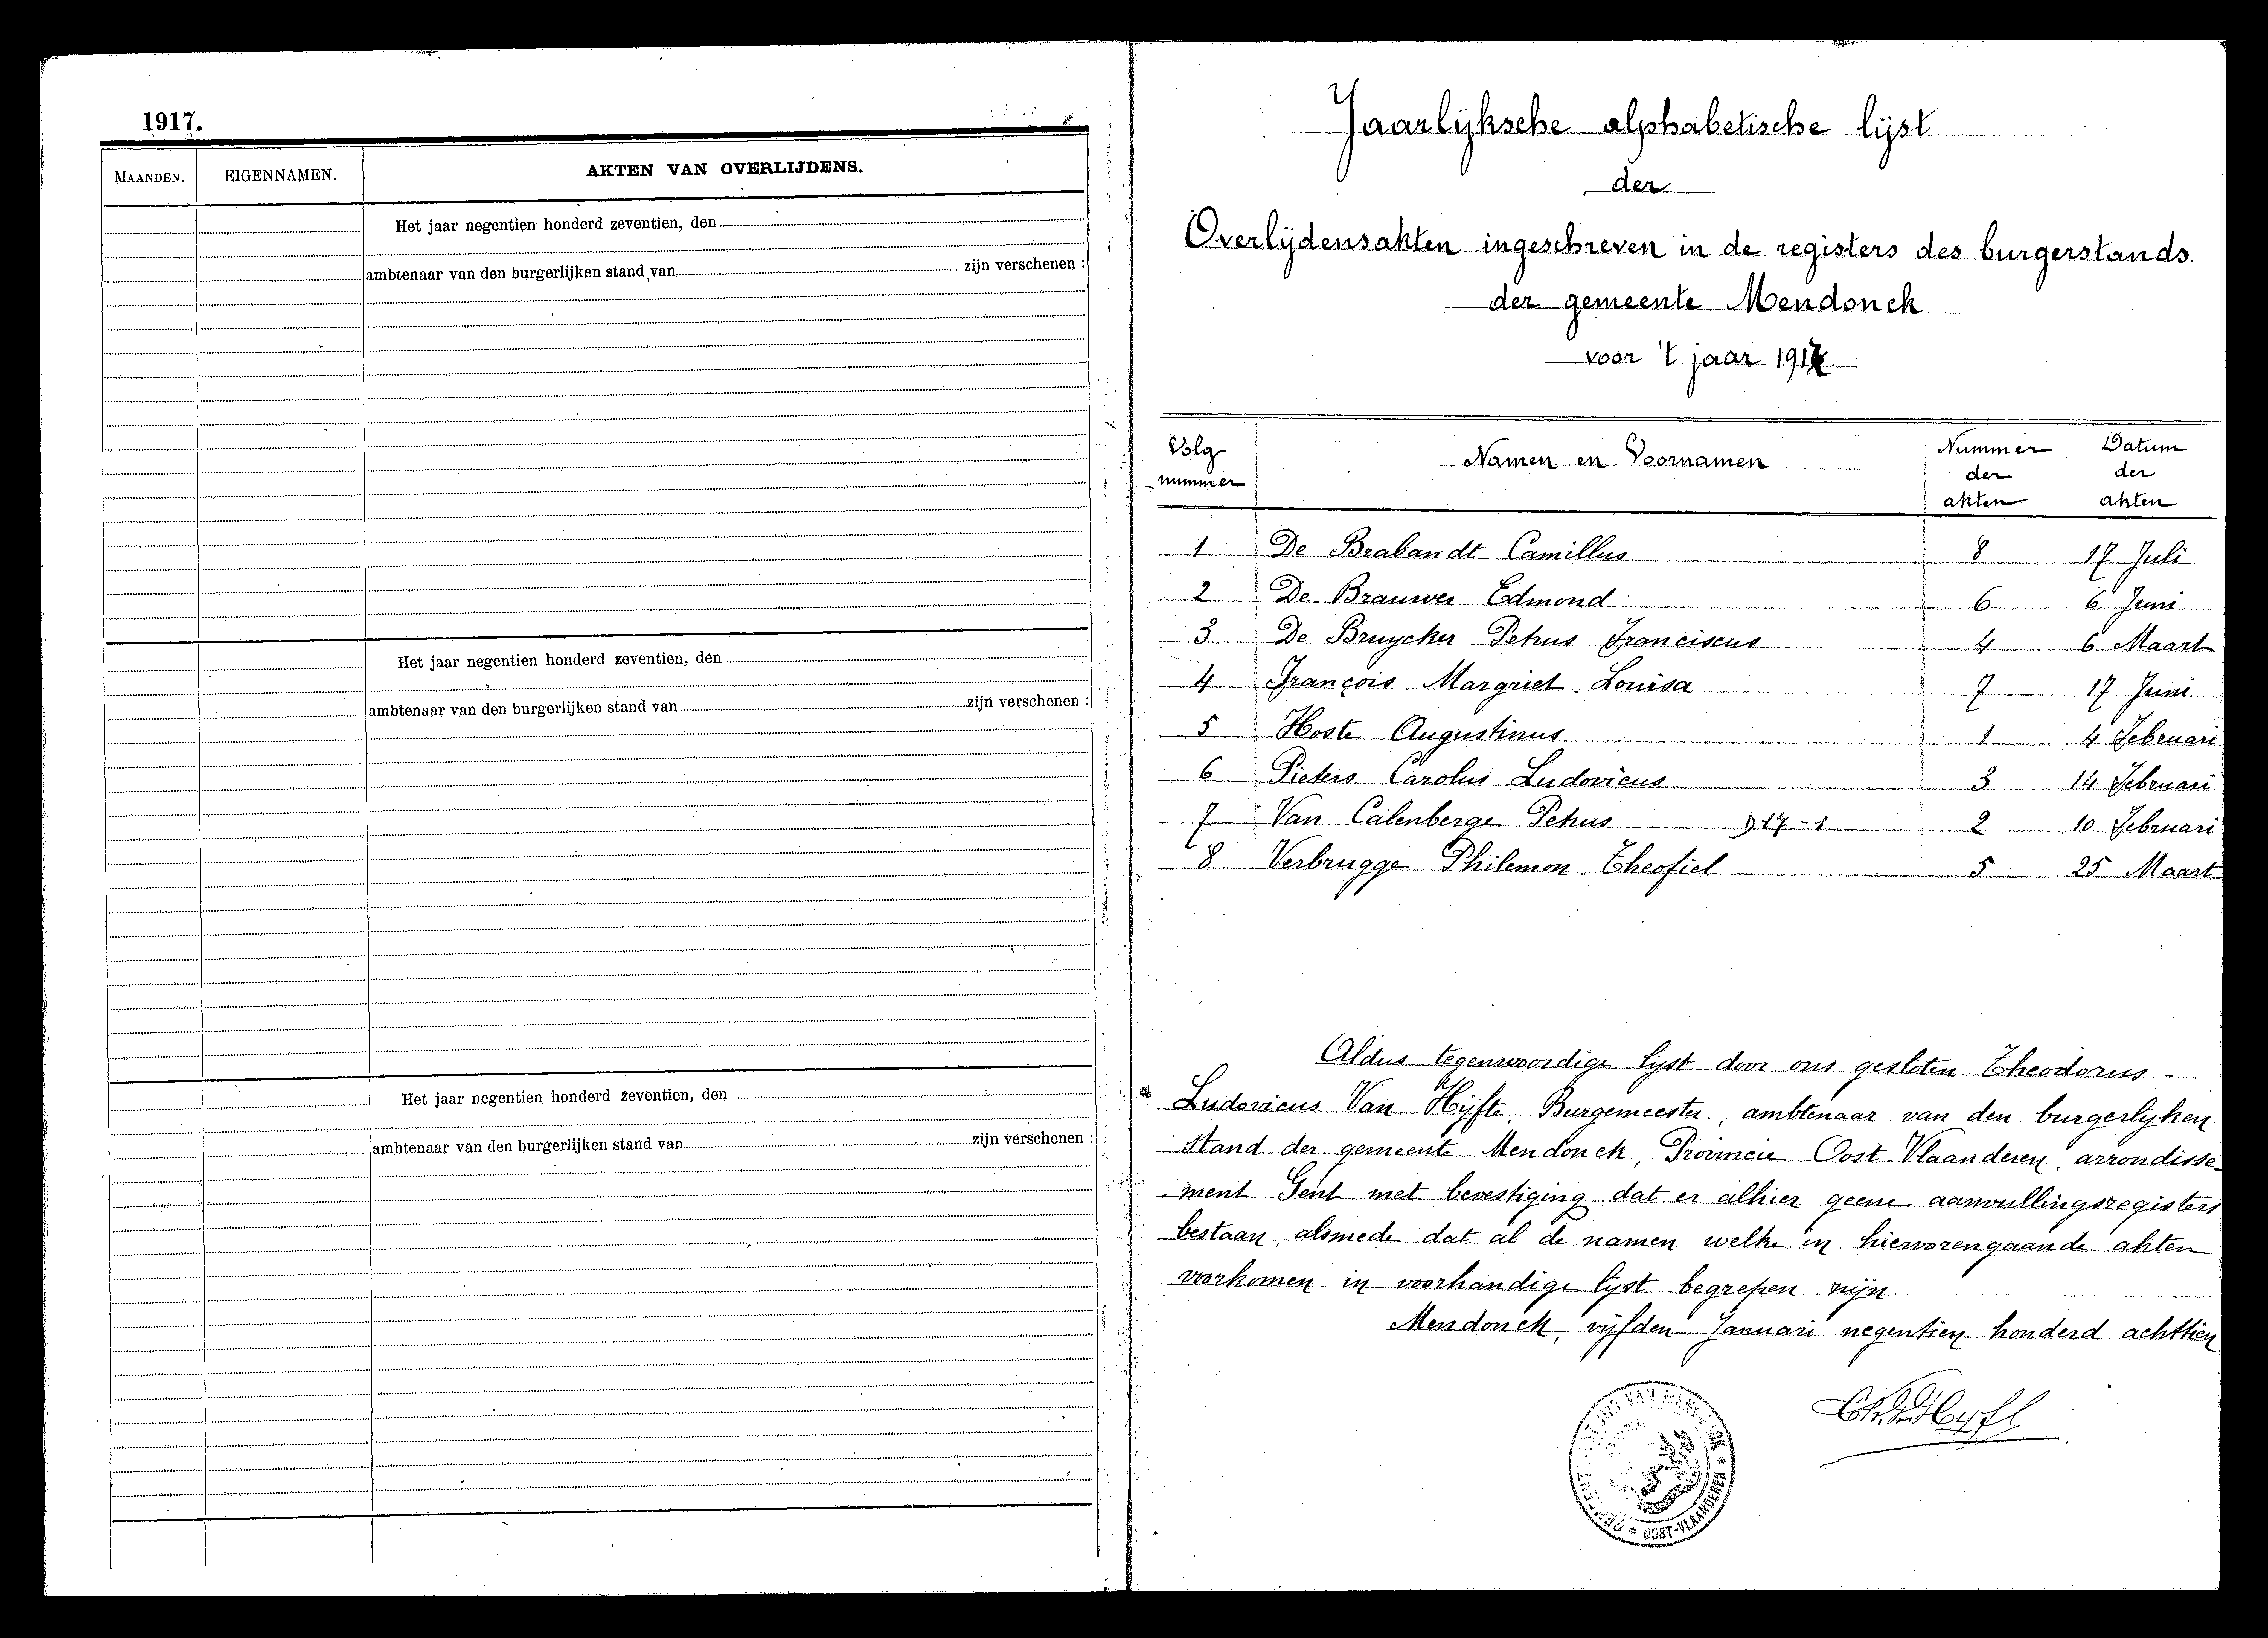 1917.
MAANDEN. EIGENNAMEN. AKTEN VAN OVERLIJDENS.
Het jaar negentien honderd zeventien, den
ambtenaar van den burgerlijken stand van zijn verschenen :
Het jaar negentien honderd zeventien, den
ambtenaar van den burgerlijken stand van zijn verschenen :
Het jaar negentien honderd zeventien, den
ambtenaar van den burgerlijken stand van zijn verschenen :
Jaarlijksche alphabetische lijst
der
Overlijdensakten ingeschreven in de registers des burgerstands
der gemeente Mendonck
voor 't jaar 1917
Volg nummer Namen en Voornamen Nummer der akten Datum der akten
1 De Brabandt Camillus 8 17 Juli
2 De Brauwer Edmond 6 6 Juni
3 De Bruycker Petrus Franciscus 4 6 Maart
4 François Margriet Louisa 7 17 Juni
5 Hoste Augustinus 1 4 Februari
6 Pieters Carolus Ludovicus 3 14 Februari
7 Van Calenberge Petrus 917-1 2 10 Februari
8 Verbrugge Philemon Theofiel 5 25 Maart
Aldus tegenwoordige lyst door ons gesloten Theodorus
Ludovicus Van Hijfte, Burgemeester, ambtenaar van den burgerlyken
Stand der gemeente Mendonck, Provincie Oost Vlaanderen, arrondisse-
ment Gent met bevestiging dat er alhier geene aanvullingsregisters
bestaan, alsmede dat al de namen welke in hiervorengaande akten
voorkomen in voorhandige lyst begrepen zijn
Mendonck, vijfden Januari negentien honderd achttien
OOST-VLAANDEREN